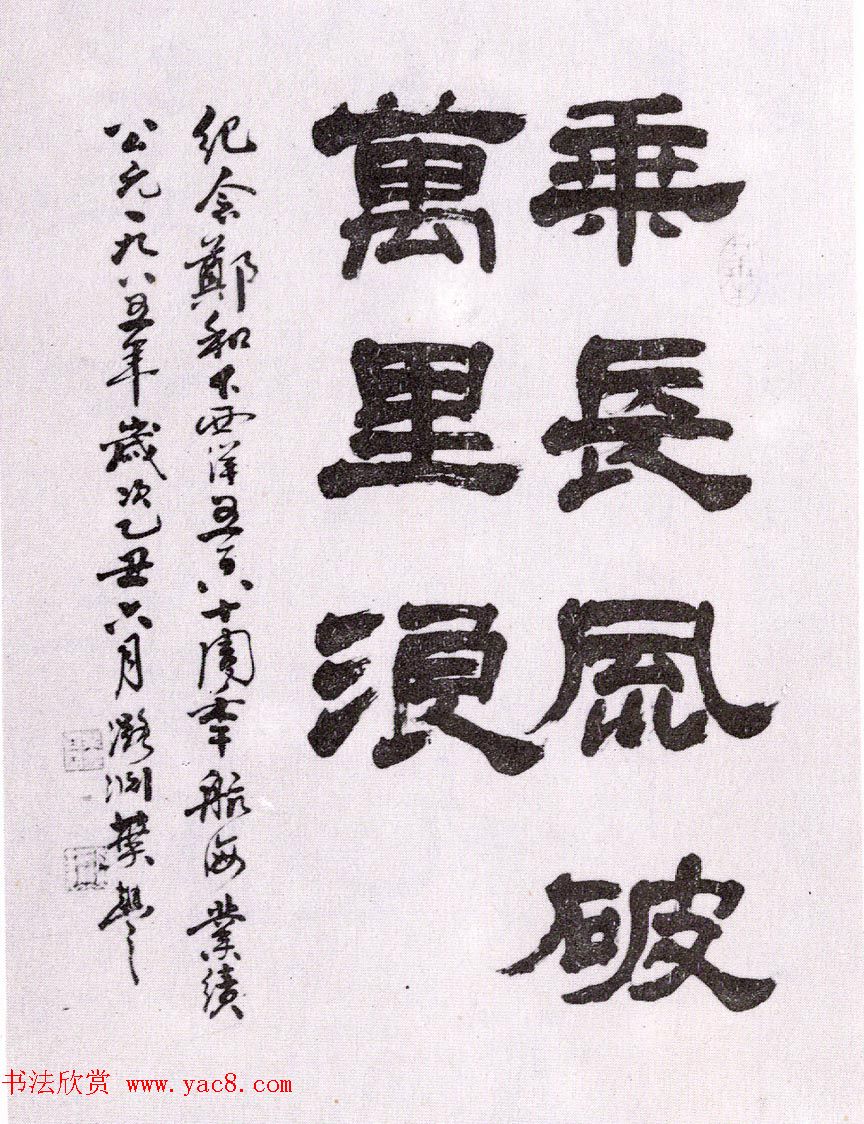 乘長風破
萬里浪
紀念鄭和下西洋五百八十周年航海業績
公元一九八五年歲次乙丑六月潞河樊
书法欣赏 www.yac8.com